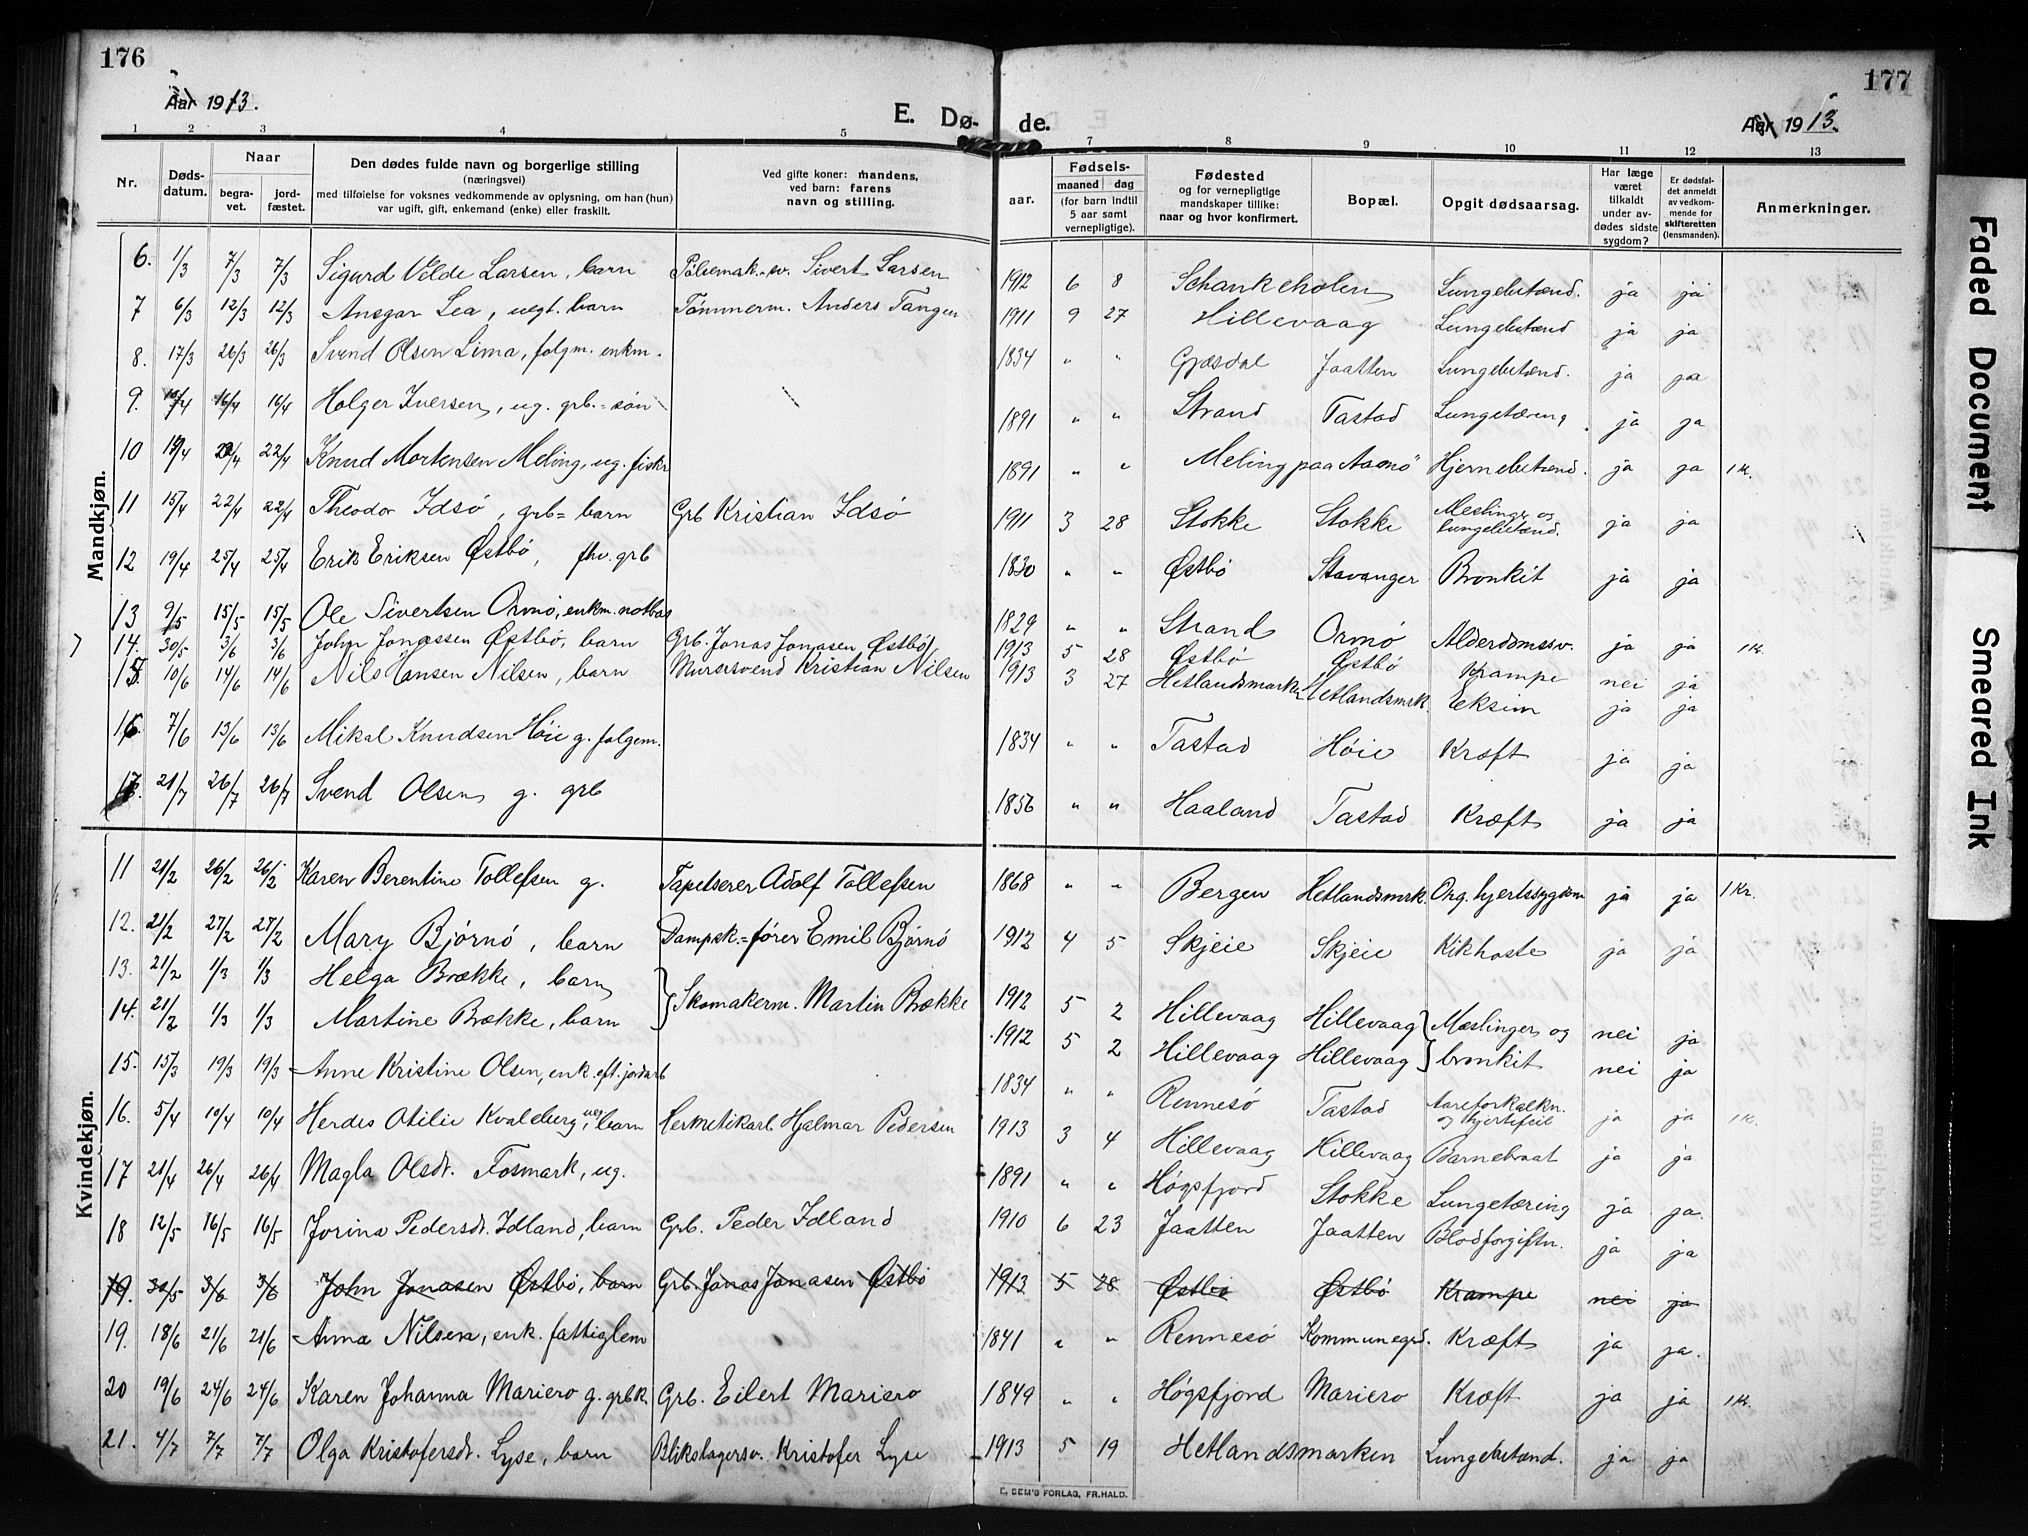 176
Aar 1913.
E. Dø-
de.
Aar 1913.
177
1 2 3 4 5 7 8 9 10 11 12 13
Nr.
Døds-
datum.
Naar
begra-
vet.
jord-
fæstet.
Den dødes fulde navn og borgerlige stilling
(næringsvei)
med tilføielse for voksnes vedkommende av oplysning, om han (hun)
var ugift, gift, enkemand (enke) eller fraskilt.
Ved gifte koner: mandens,
ved barn: farens
navn og stilling.
Fødsels-
aar.
maaned dag
(for barn indtil
5 aar samt
vernepligtige).
Fødested
og for vernepligtige
mandskaper tillike:
naar og hvor konfirmert.
Bopæl.
Opgit dødsaarsag.
Har læge
været
tilkaldt
under av-
dødes sidste
sygdom?
Er dødsfal-
det anmeldt
av vedkom-
mende for
skifteretten
(lensmanden).
Anmerkninger.
Mandkjøn.
6. 1/3 7/3 7/3 Sigurd Velde Larsen, barn Pølsemak.-sv. Sivert Larsen 1912 6 8 Schankeholen Lungebetænd. ja ja
7 6/3 12/3 12/3 Ansgar Lea, uegt. barn Tømmerm. Anders Tangen 1911 9 27 Hillevaag Lungebetænd ja ja
8. 17/3 26/3 26/3 Svend Olsen Lima, folgm. enkm. 1834 " " Gjæsdal Jaatten Lungebetænd. ja ja
9. 10/4 16/4 16/4 Holger Iversen, ug. grb.-søn 1891 " " Strand Tastad Lungetæring ja ja
10 19/4 22/4 22/4 Knud Mortensen Meling, ug. fiskr 1891 " " Meling paa Aamø Hjernebetænd. ja ja 1 K.
11 15/4 22/4 22/4 Theodor Idsø, grb= barn Grb Kristian Idsø 1911 3 28 Stokke Stokke Meslinger og lungebetænd. ja ja
12 19/4 25/4 25/4 Erik Eriksen Østbø, fhv. grb 1830 " " Østbø Stavanger Bronkit ja ja
13 9/5 15/5 15/5 Ole Sivertsen Ormø, enkm. notbas 1829 " " Strand Ormø Alderdomssv. ja ja 1 K.
14. 30/5 3/6 3/6 John Jonassen Østbø, barn Grb. Jonas Jonasen Østbø 1913 5 28 Østbø Østbø Krampe nei ja
15. 10/6 14/6 14/6 Nils Hansen Nilsen, barn Murersvend Kristian Nilsen 1913 3 27 Hetlandsmarken Hetlandsmrk. Eksim ja ja
16 7/6 13/6 13/6 Mikal Knudsen Høie g. folgem. 1834 " " Tastad Høie Kræft ja ja
17. 21/7 26/7 26/7 Svend Olsen g. grb 1856 " " Haaland Tastad Kræft ja ja
Kvindekjøn.
11 21/2 26/2 26/2 Karen Berentine Tollefsen g. Tapetserer Adolf Tollefsen 1868 " " Bergen Hetlandsmrk. Org. hjertesygdom ja ja 1 Kr.
12. 21/2 27/2 27/2 Mary Bjørnø, barn Dampsk.=fører Emil Bjørnø 1912 4 5 Skjeie Skjeie Kikhoste ja ja
13. 21/2 1/3 1/3 Helga Brække, barn } Skomakerm. Martin Brække 1912 5 2 Hillevaag Hillevaag } Mæslinger og nei ja
14. 21/2 1/3 1/3 Martine Brække, barn 1912 5 2 Hillevaag Hillevaag } bronkit nei ja
15. 15/3 19/3 19/3 Anne Kristine Olsen, enk. eft. jordarb 1834 " " Rennesø Tastad Aareforkalkn. og hjertefeil ja ja 1 K.
16. 5/4 10/4 10/4 Herdis Otilie Kvaleberg, ueg. barn Hermetikarb Hjalmar Pedersen 1913 3 4 Hillevaag Hillevaag Barnebraat ja ja
17 21/4 26/4 26/4 Magla Olsdt. Fosmark, ug. 1891 " " Høgsfjord Stokke Lungetæring ja ja.
18 12/5 16/5 16/5 Jorina Pedersdt. Idland, barn Grb. Peder Idland 1910 6 23 Jaatten Jaatten Blodforgiftn. ja ja
19. 30/5 3/6 3/6 John Jonasen Østbø, barn Grb. Jonas Jonasen Østbø 1913 5 28 Østbø Østbø Krampe nei ja
19. 18/6 21/6 21/6 Anna Nilsen, enk. fattiglem 1841 " " Rennesø Kommunegrd. Kræft ja ja.
20 19/6 24/6 24/6 Karen Johanna Mariero g. grbk Grb. Eilert Mariero 1849 " " Høgsfjord Mariero Kræft ja ja 1 K.
21. 4/7 7/7 7/7 Olga Kristofersdt. Lyse, barn Blikslagersv. Kristofer Lyse 1913 5 19 Hetlandsmarken Lungebetænd. ja ja
E. SEM'S FORLAG, FR.HALD.
Faded Document
Smeared Ink